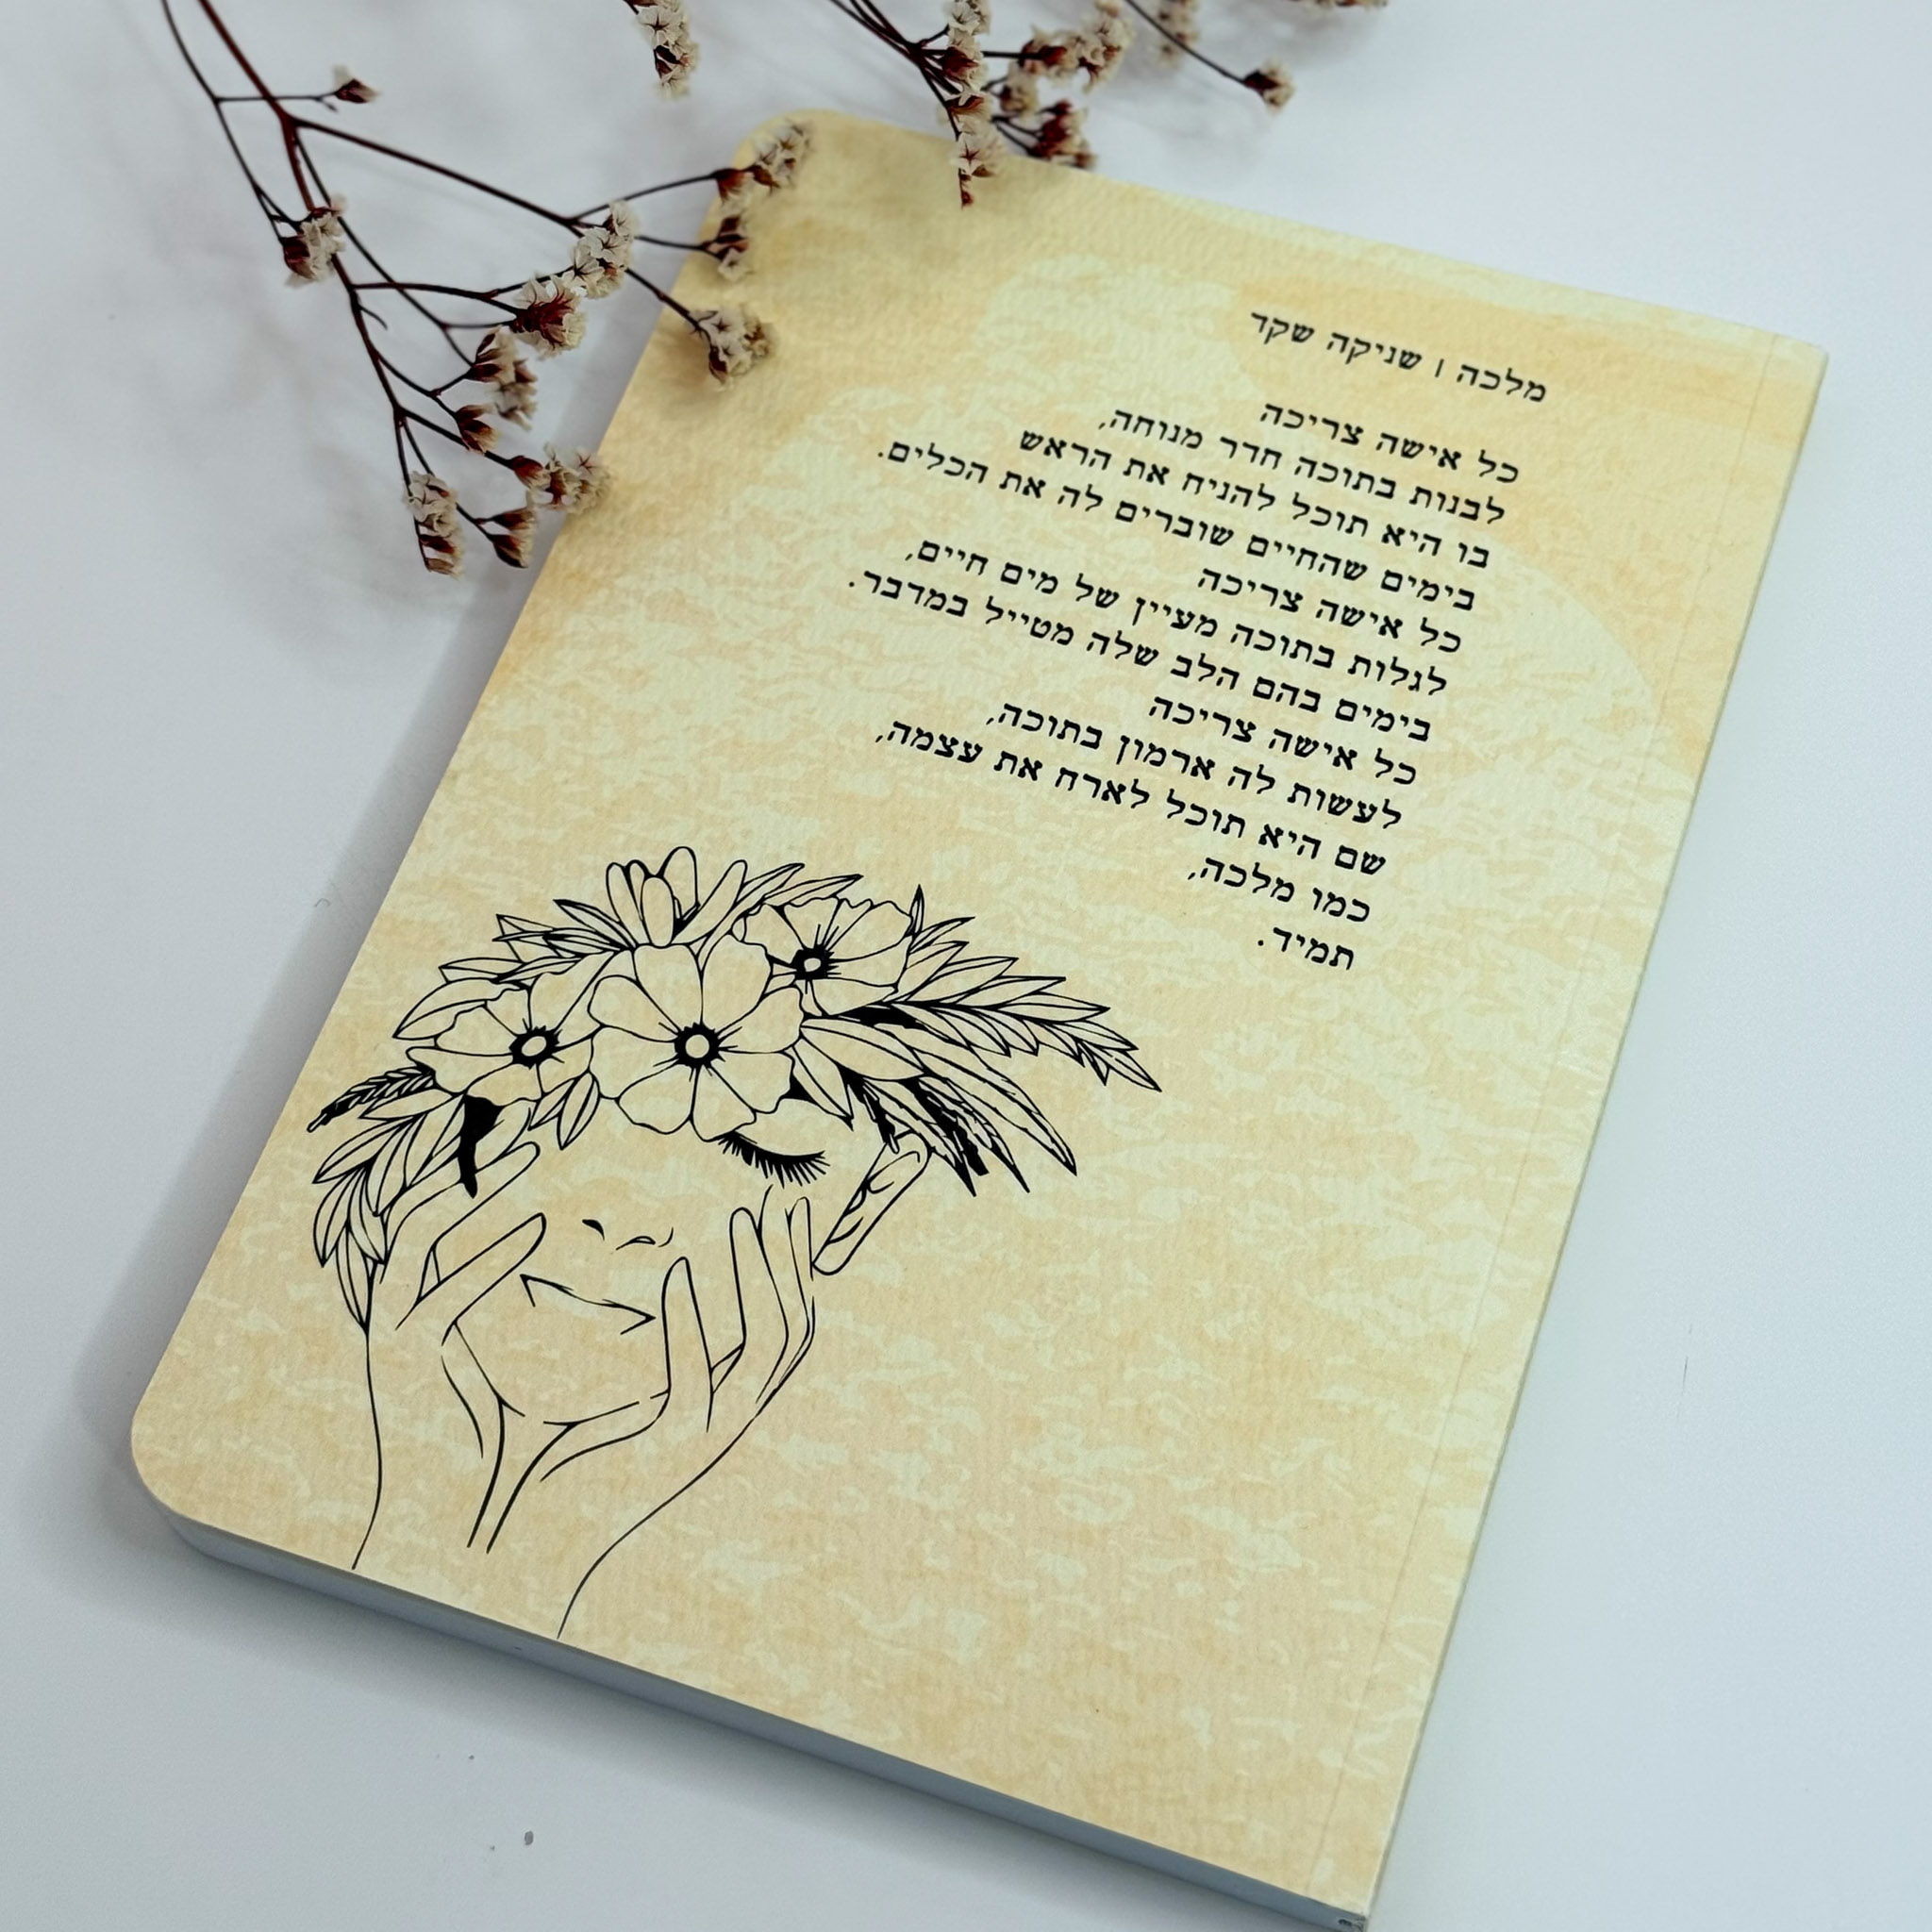 מלכה | שניקה שקד
כל אישה צריכה
לבנות בתוכה חדר מנוחה,
בו היא תוכל להניח את הראש
בימים שהחיים שוברים לה את הכלים.
כל אישה צריכה
לגלות בתוכה מעיין של מים חיים,
בימים בהם הלב שלה מטייל במדבר.
כל אישה צריכה
לעשות לה ארמון בתוכה,
שם היא תוכל לארח את עצמה,
כמו מלכה,
תמיד.